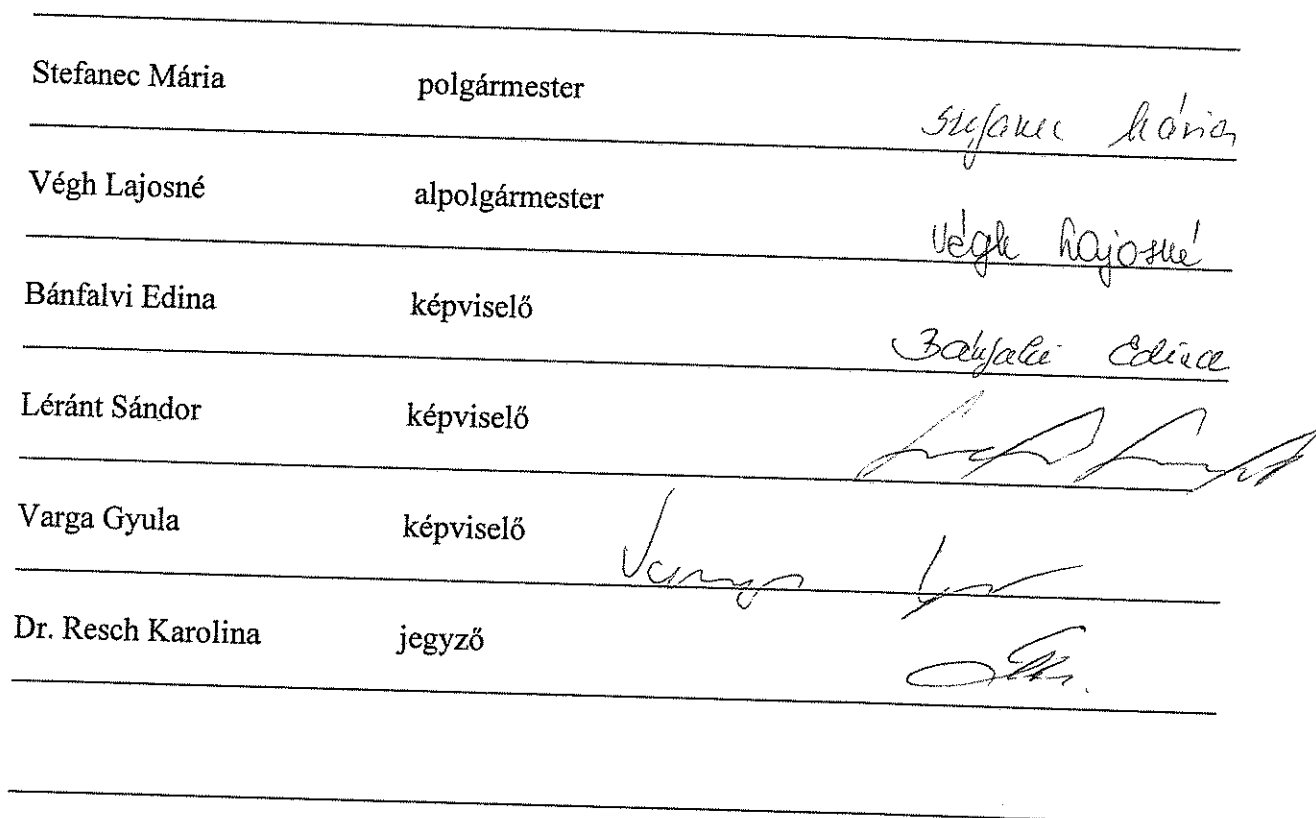 Stefanec Mária polgármester Stefanec Mária
Végh Lajosné alpolgármester Végh Lajosné
Bánfalvi Edina képviselő Bánfalvi Edina
Léránt Sándor képviselő
Varga Gyula képviselő Varga
Dr. Resch Karolina jegyző